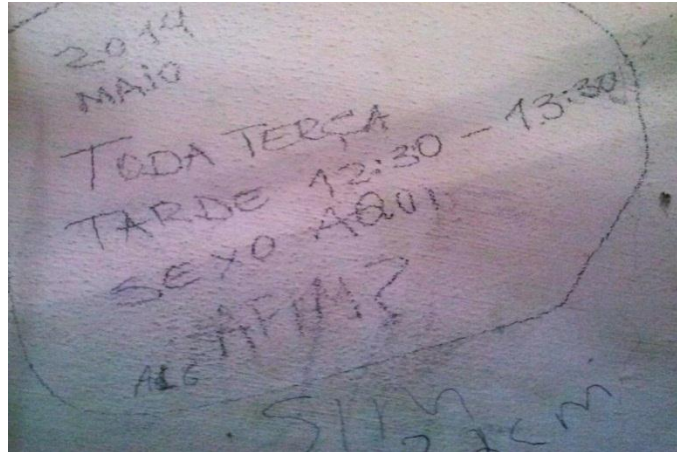 2014
MAIO
TODA TERÇA
TARDE 12:30 - 13:30
SEXO AQUI
AFIM?
SIM